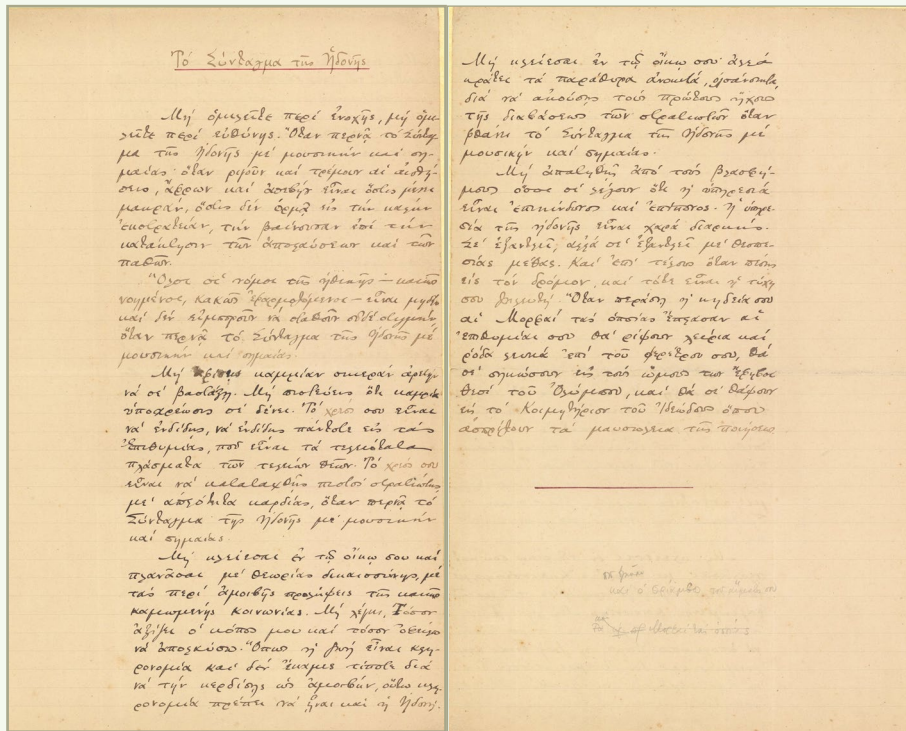 Τό Σύνταγμα τῆς Ἡδονῆς
Μή ὁμιλεῖτε περί ἐνοχῆς, μή ὁμι-
λεῖτε περί εὐθύνης. Ὅταν περνᾷ τό Σύνταγ-
μα τῆς Ἡδονῆς μέ μουσικήν καί ση-
μαίας· ὅταν ριγοῦν καί τρέμουν αἱ αἰσθή-
σεις, ἄφρων καί ἀσεβής εἶναι ὅστις μένει
μακράν, ὅστις δέν ὁρμᾷ εἰς τήν καλήν
ἐκστρατείαν, τήν βαίνουσαν ἐπί τήν
κατάκτησιν τῶν ἀπολαύσεων καί τῶν
παθῶν.
Ὅλοι οἱ νόμοι τῆς ἠθικῆς — κακῶς
νοημένοι, κακῶς ἐφαρμοζόμενοι — εἶναι μηδέν
καί δέν εἰμποροῦν νά σταθοῦν οὐδέ στιγμήν,
ὅταν περνᾷ τό Σύνταγμα τῆς Ἡδονῆς μέ
μουσικήν καί σημαίας.
Μή καμμίαν σκιεράν ἀρετήν
νά σέ βαστάξῃ. Μή πιστεύεις ὅτι καμμία
ὑποχρέωσις σέ δένει. Τό χρέος σου εἶναι
νά ἐνδίδῃς, νά ἐνδίδῃς πάντοτε εἰς τάς
Ἐπιθυμίας, πού εἶναι τά τελειότατα
πλάσματα τῶν τελείων θεῶν. Τό χρέος σου
εἶναι νά καταταχθῇς πιστός στρατιώτης,
μέ ἁπλότητα καρδίας, ὅταν περνᾷ τό
Σύνταγμα τῆς Ἡδονῆς μέ μουσικήν
καί σημαίας.
Μή κλείεσαι ἐν τῷ οἴκῳ σου καί
πλανᾶσαι μέ θεωρίας δικαιοσύνης, μέ
τάς περί ἀμοιβῆς προλήψεις τῆς κακῶς
καμωμένης κοινωνίας. Μή λέγεις, Τόσον
ἀξίζει ὁ κόπος μου καί τόσον ὀφείλω
νά ἀπολαύσω. Ὅπως ἡ ζωή εἶναι κλη-
ρονομία καί δέν ἔκαμες τίποτε διά
νά τήν κερδίσῃς ὡς ἀμοιβήν, οὕτω κλη-
ρονομία πρέπει νά εἶναι καί ἡ Ἡδονή.
Μή κλείεσαι ἐν τῷ οἴκῳ σου· ἀλλά
κράτει τά παράθυρα ἀνοικτά, ὁλοάνοικτα,
διά νά ἀκούσῃς τούς πρώτους ἤχους
τῆς διαβάσεως τῶν στρατιωτῶν ὅταν
φθάνει τό Σύνταγμα τῆς Ἡδονῆς μέ
μουσικήν καί σημαίας.
Μή ἀπατηθῇς ἀπό τούς βλασφή-
μους ὅσοι σέ λέγουν ὅτι ἡ ὑπηρεσία
εἶναι ἐπικίνδυνος καί ἐπίπονος. Ἡ ὑπηρε-
σία τῆς ἡδονῆς εἶναι χαρά διαρκής.
Σέ ἐξαντλεῖ, ἀλλά σέ ἐξαντλεῖ μέ θεσπε-
σίας μέθας. Καί ἐπί τέλους ὅταν πέσῃς
εἰς τόν δρόμον, καί τότε εἶναι ἡ τύχη
σου ζηλευτή. Ὅταν περάσῃ ἡ κηδεία σου
αἱ Μορφαί τάς ὁποίας ἔπλασαν αἱ
ἐπιθυμίαι σου θά ρίψουν λείρια καί
ρόδα λευκά ἐπί τοῦ φερέτρου σου, θά
σέ σηκώσουν εἰς τούς ὤμους των ἔφηβοι
Θεοί τοῦ Ὀλύμπου, καί θά σέ θάψουν
εἰς τό Κοιμητήριον τοῦ Ἰδεώδους ὅπου
ἀσπρίζουν τά μαυσωλεία τῆς ποιήσεως